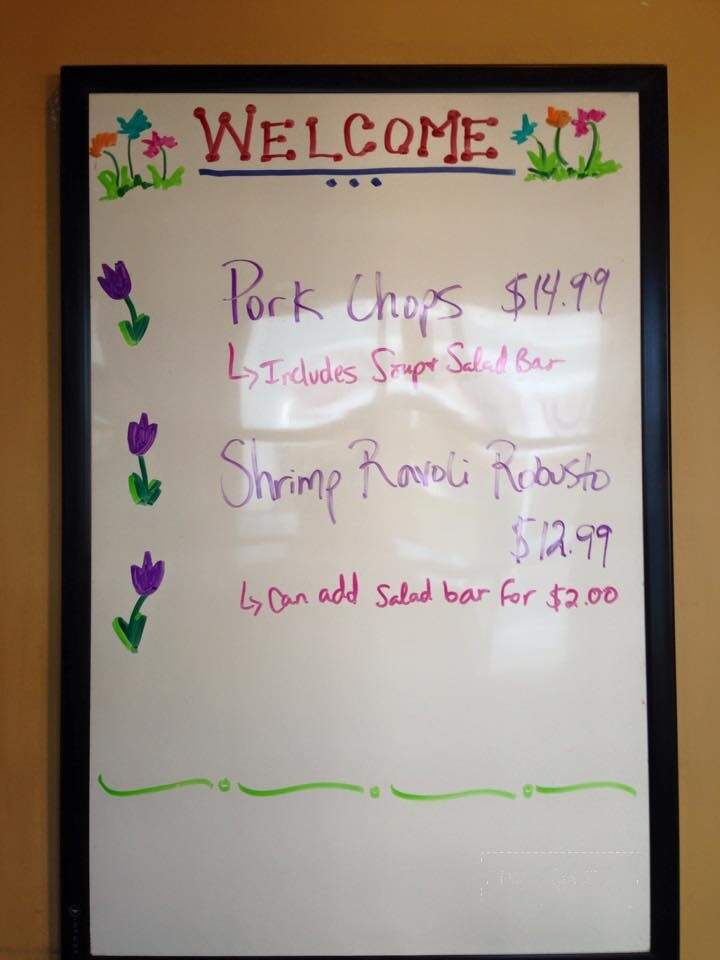 WELCOME
Pork Chops $14.99
↳ Includes Soup + Salad Bar
Shrimp Ravoli Robusto
$12.99
↳ Can add Salad bar for $2.00